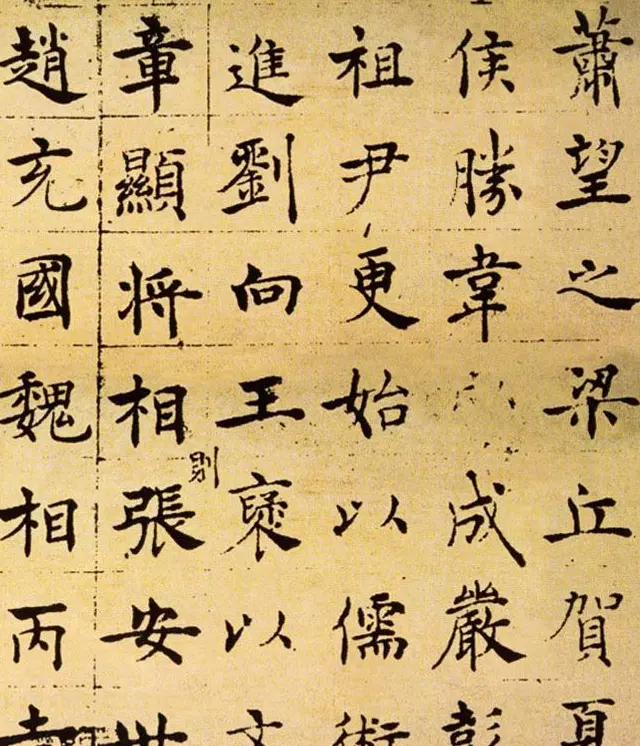 蕭望之梁丘賀夏
侯勝韋成嚴彭
祖尹更始以儒術
進劉向王褒以文
別
章顯将相張安世
趙充國魏相丙吉